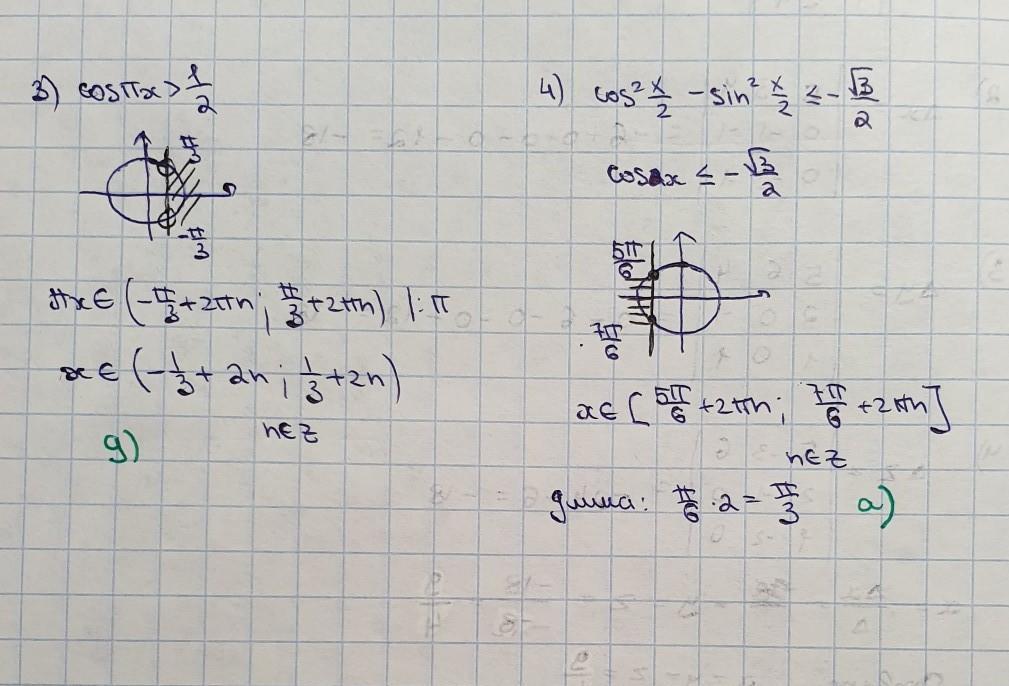 3) cosπx > 1/2
π/3
-π/3
πx ∈ (-π/3 + 2πn ; π/3 + 2πn) |: π
x ∈ (-1/3 + 2n ; 1/3 + 2n)
n ∈ Z
g)
4) cos² x/2 - sin² x/2 ≤ -√3/2
cos x ≤ -√3/2
5π/6
7π/6
x ∈ [5π/6 + 2πn ; 7π/6 + 2πn]
n ∈ Z
длина: π/6 · 2 = π/3 a)